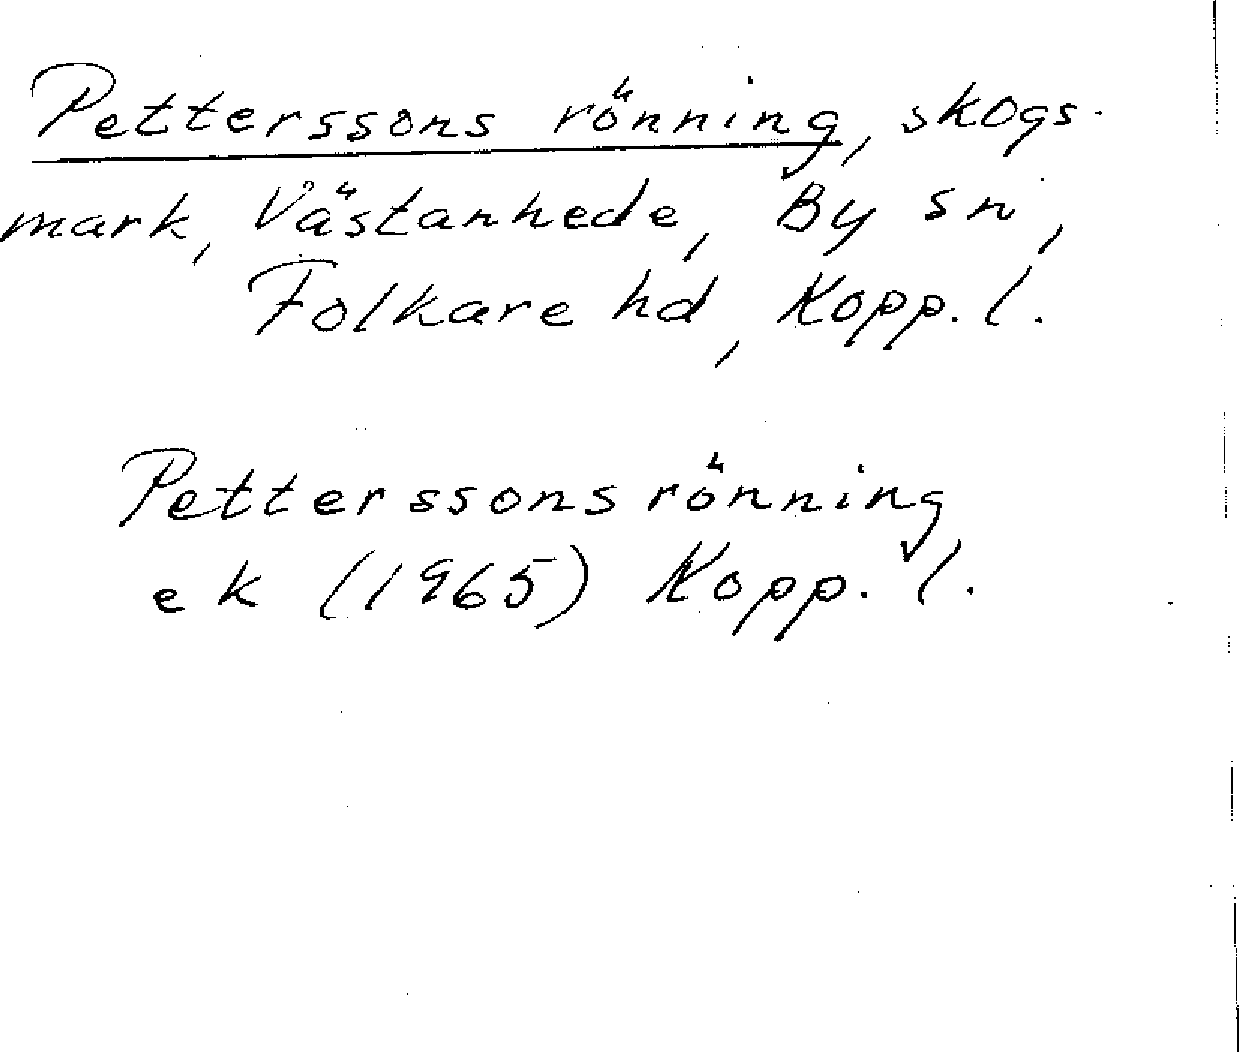 Petterssons rönning, skogs-
mark, Västanhede, By sn,
Folkare hd, Kopp. l.
Petterssons rönning
ek (1965) Kopp. l.